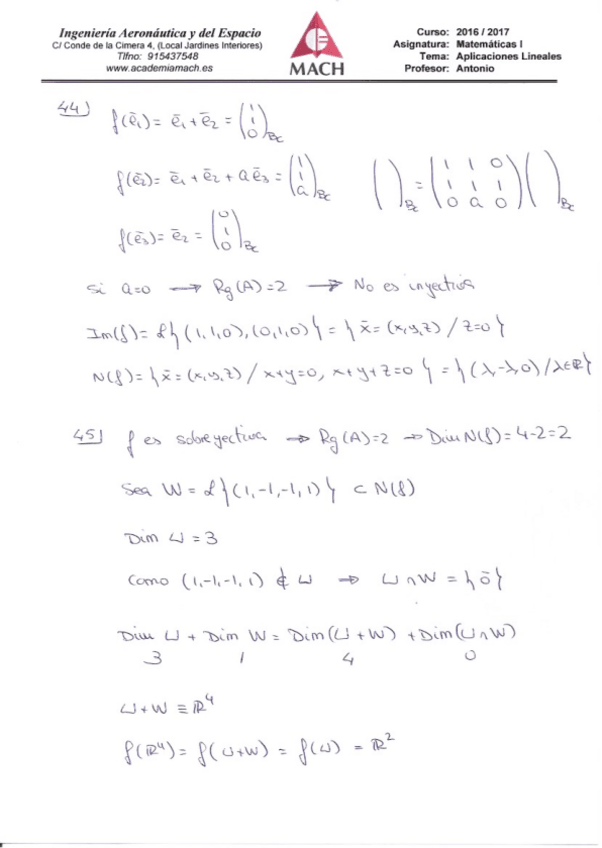 Ingeniería Aeronáutica y del Espacio
C/ Conde de la Cimera 4, (Local Jardines Interiores)
Tlfno: 915437548
www.academiamach.es
MACH
Curso: 2016 / 2017
Asignatura: Matemáticas I
Tema: Aplicaciones Lineales
Profesor: Antonio
44) f(ē₁) = ē₁ + ē₂ = (1 1 0)Bc
f(ē₂) = ē₁ + ē₂ + a ē₃ = (1 1 a)Bc
( )Bc = (1 1 0
1 1 1
0 a 0) ( )Bc
f(ē₃) = ē₂ = (0 1 0)Bc
Si a=0 → Rg(A)=2 → No es inyectiva
Im(f) = L{(1,1,0),(0,1,0)} = {x̄ = (x,y,z) / z=0}
N(f) = {x̄ = (x,y,z) / x+y=0, x+y+z=0} = {(λ,-λ,0) / λ∈ℝ}
45) f es sobreyectiva → Rg(A)=2 → Dim N(f) = 4-2=2
Sea W = L{(1,-1,-1,1)} ⊂ N(f)
Dim U = 3
Como (1,-1,-1,1) ∉ U → U∩W = {ō}
Dim U + Dim W = Dim(U+W) + Dim(U∩W)
3 1 4 0
U+W ≡ ℝ⁴
f(ℝ⁴) = f(U+W) = f(U) = ℝ²